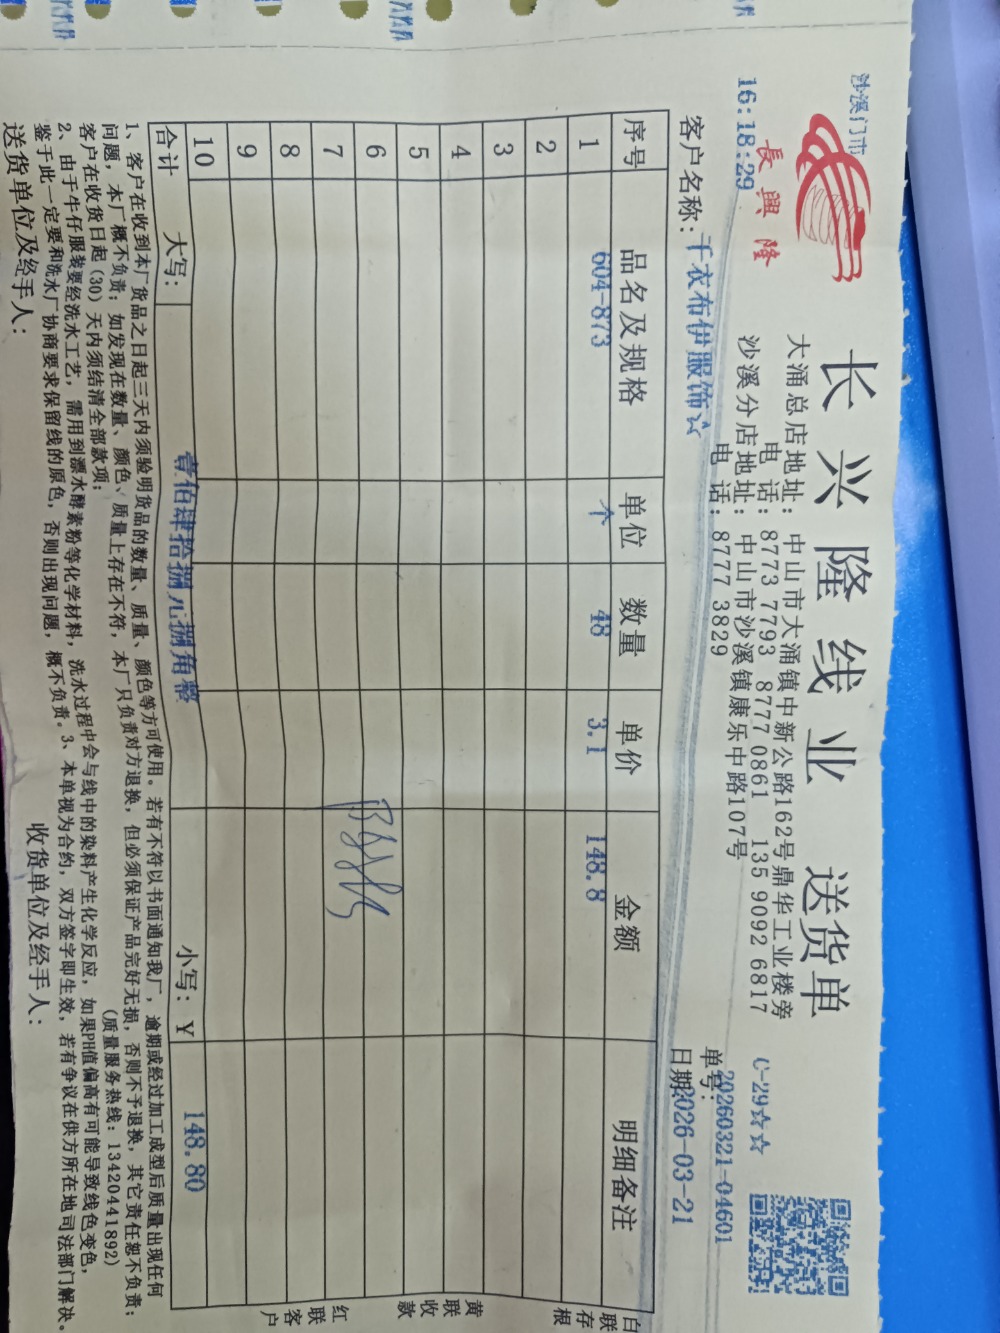 沙溪门市
16:18:29
長興隆
长兴隆线业 送货单
大涌总店地址：中山市大涌镇中新公路162号鼎华工业楼旁
电 话：8773 7793 8777 0861 135 9092 6817
沙溪分店地址：中山市沙溪镇康乐中路107号
电 话：8777 3829
C-29☆☆
单号：20260321-04601
客户名称：千衣布伊服饰☆
日期：2026-03-21
序号 品名及规格 单位 数量 单价 金额 明细备注
1 604-873 个 48 3.1 148.8
2
3
4
5
6
7
8
9
10
合计 大写： 壹佰肆拾捌元捌角整 小写：¥ 148.80
白联存根
黄联收款
红联客户
1、客户在收到本厂货品之日起三天内须验明货品的数量、质量、颜色等方可使用。若有不符以书面通知我厂，逾期或经过加工成型后质量出现任何
问题，本厂概不负责；如发现在数量、颜色、质量上存在不符，本厂只负责对方退换，但必须保证产品完好无损，否则不予退换，其它责任恕不负责；
客户在收货日起（30）天内须结清全部款项；
（质量服务热线：13420441892）
2、由于牛仔服装要经洗水工艺，需用到漂水酵素粉等化学材料，洗水过程中会与线中的染料产生化学反应，如果PH值偏高有可能导致线色变色，
鉴于此一定要和洗水厂协商要求保留线的原色，否则出现问题，概不负责。3、本单视为合约，双方签字即生效，若有争议在供方所在地司法部门解决。
送货单位及经手人： 收货单位及经手人：